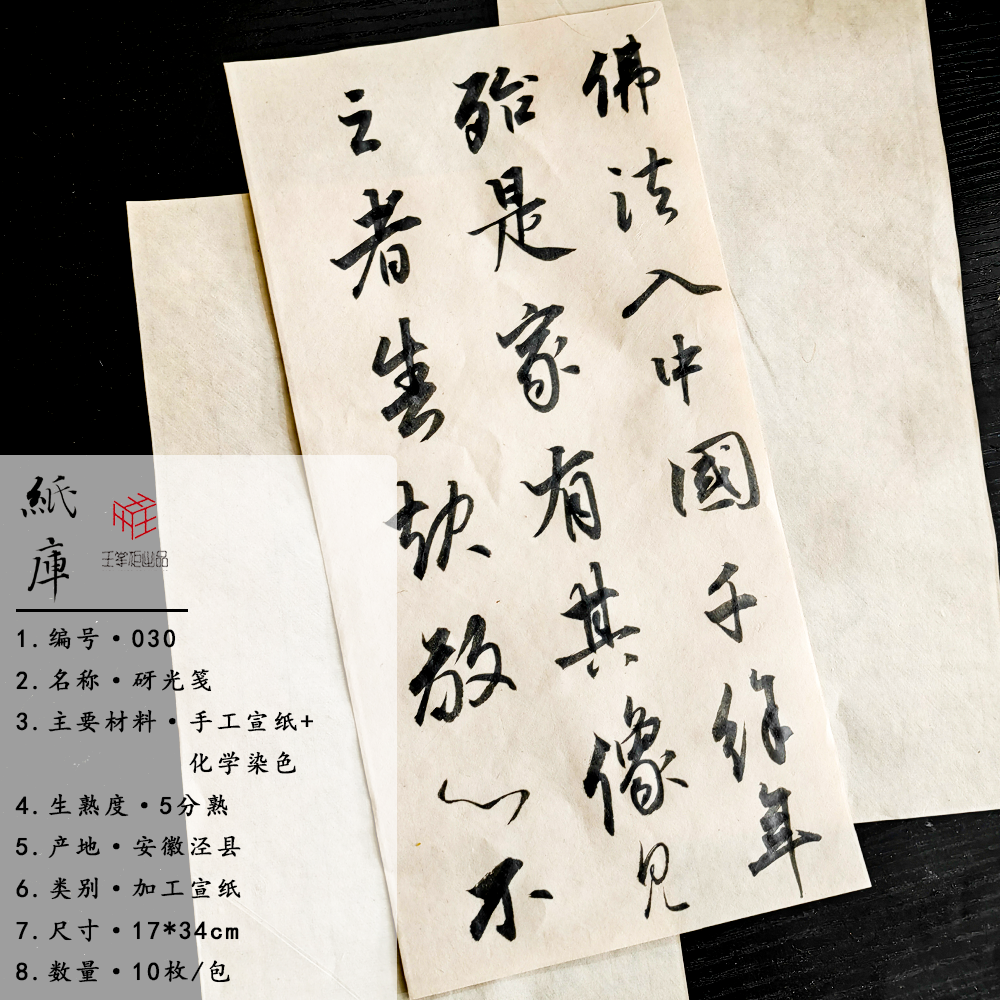 佛法入中國千餘年
殆是家有其像見
之者生欽敬心不
紙庫
王掌柜出品
1.编号·030
2.名称·砑光笺
3.主要材料·手工宣纸+
化学染色
4.生熟度·5分熟
5.产地·安徽泾县
6.类别·加工宣纸
7.尺寸·17*34cm
8.数量·10枚/包